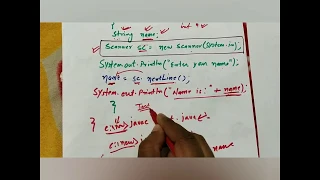 String name;
Scanner sc = new Scanner(System.in);
System.out.Println("Enter your name");
name = sc. nextLine();
System.out.Println("Name is:" + name);
}
} c:\new> javac
c:\new>